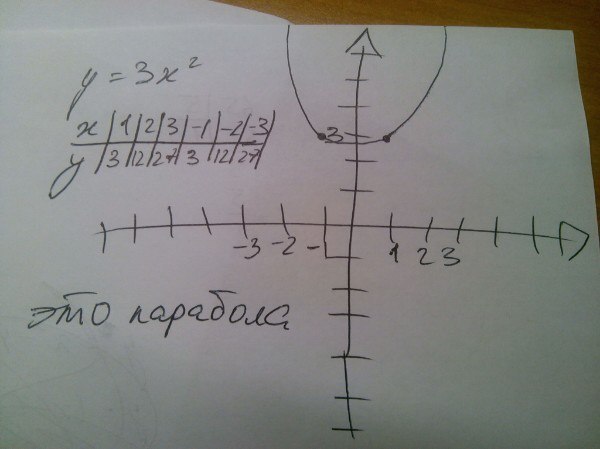 y = 3x²
x | 1 | 2 | 3 | -1 | -2 | -3
y | 3 | 12 | 27 | 3 | 12 | 27
3
-3 -2 -1 1 2 3
это парабола